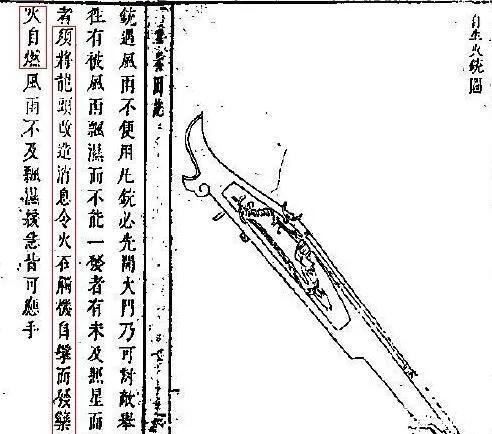 自生火銃圖
銃遇風雨不便用凡銃必先開火門乃可對敵舉
往有被風雨飄濕而不能一發者有未及點星而
者須將龍頭改造消息令火石觸機自擊而發藥
火自燃風雨不及飄濕緩急皆可應手